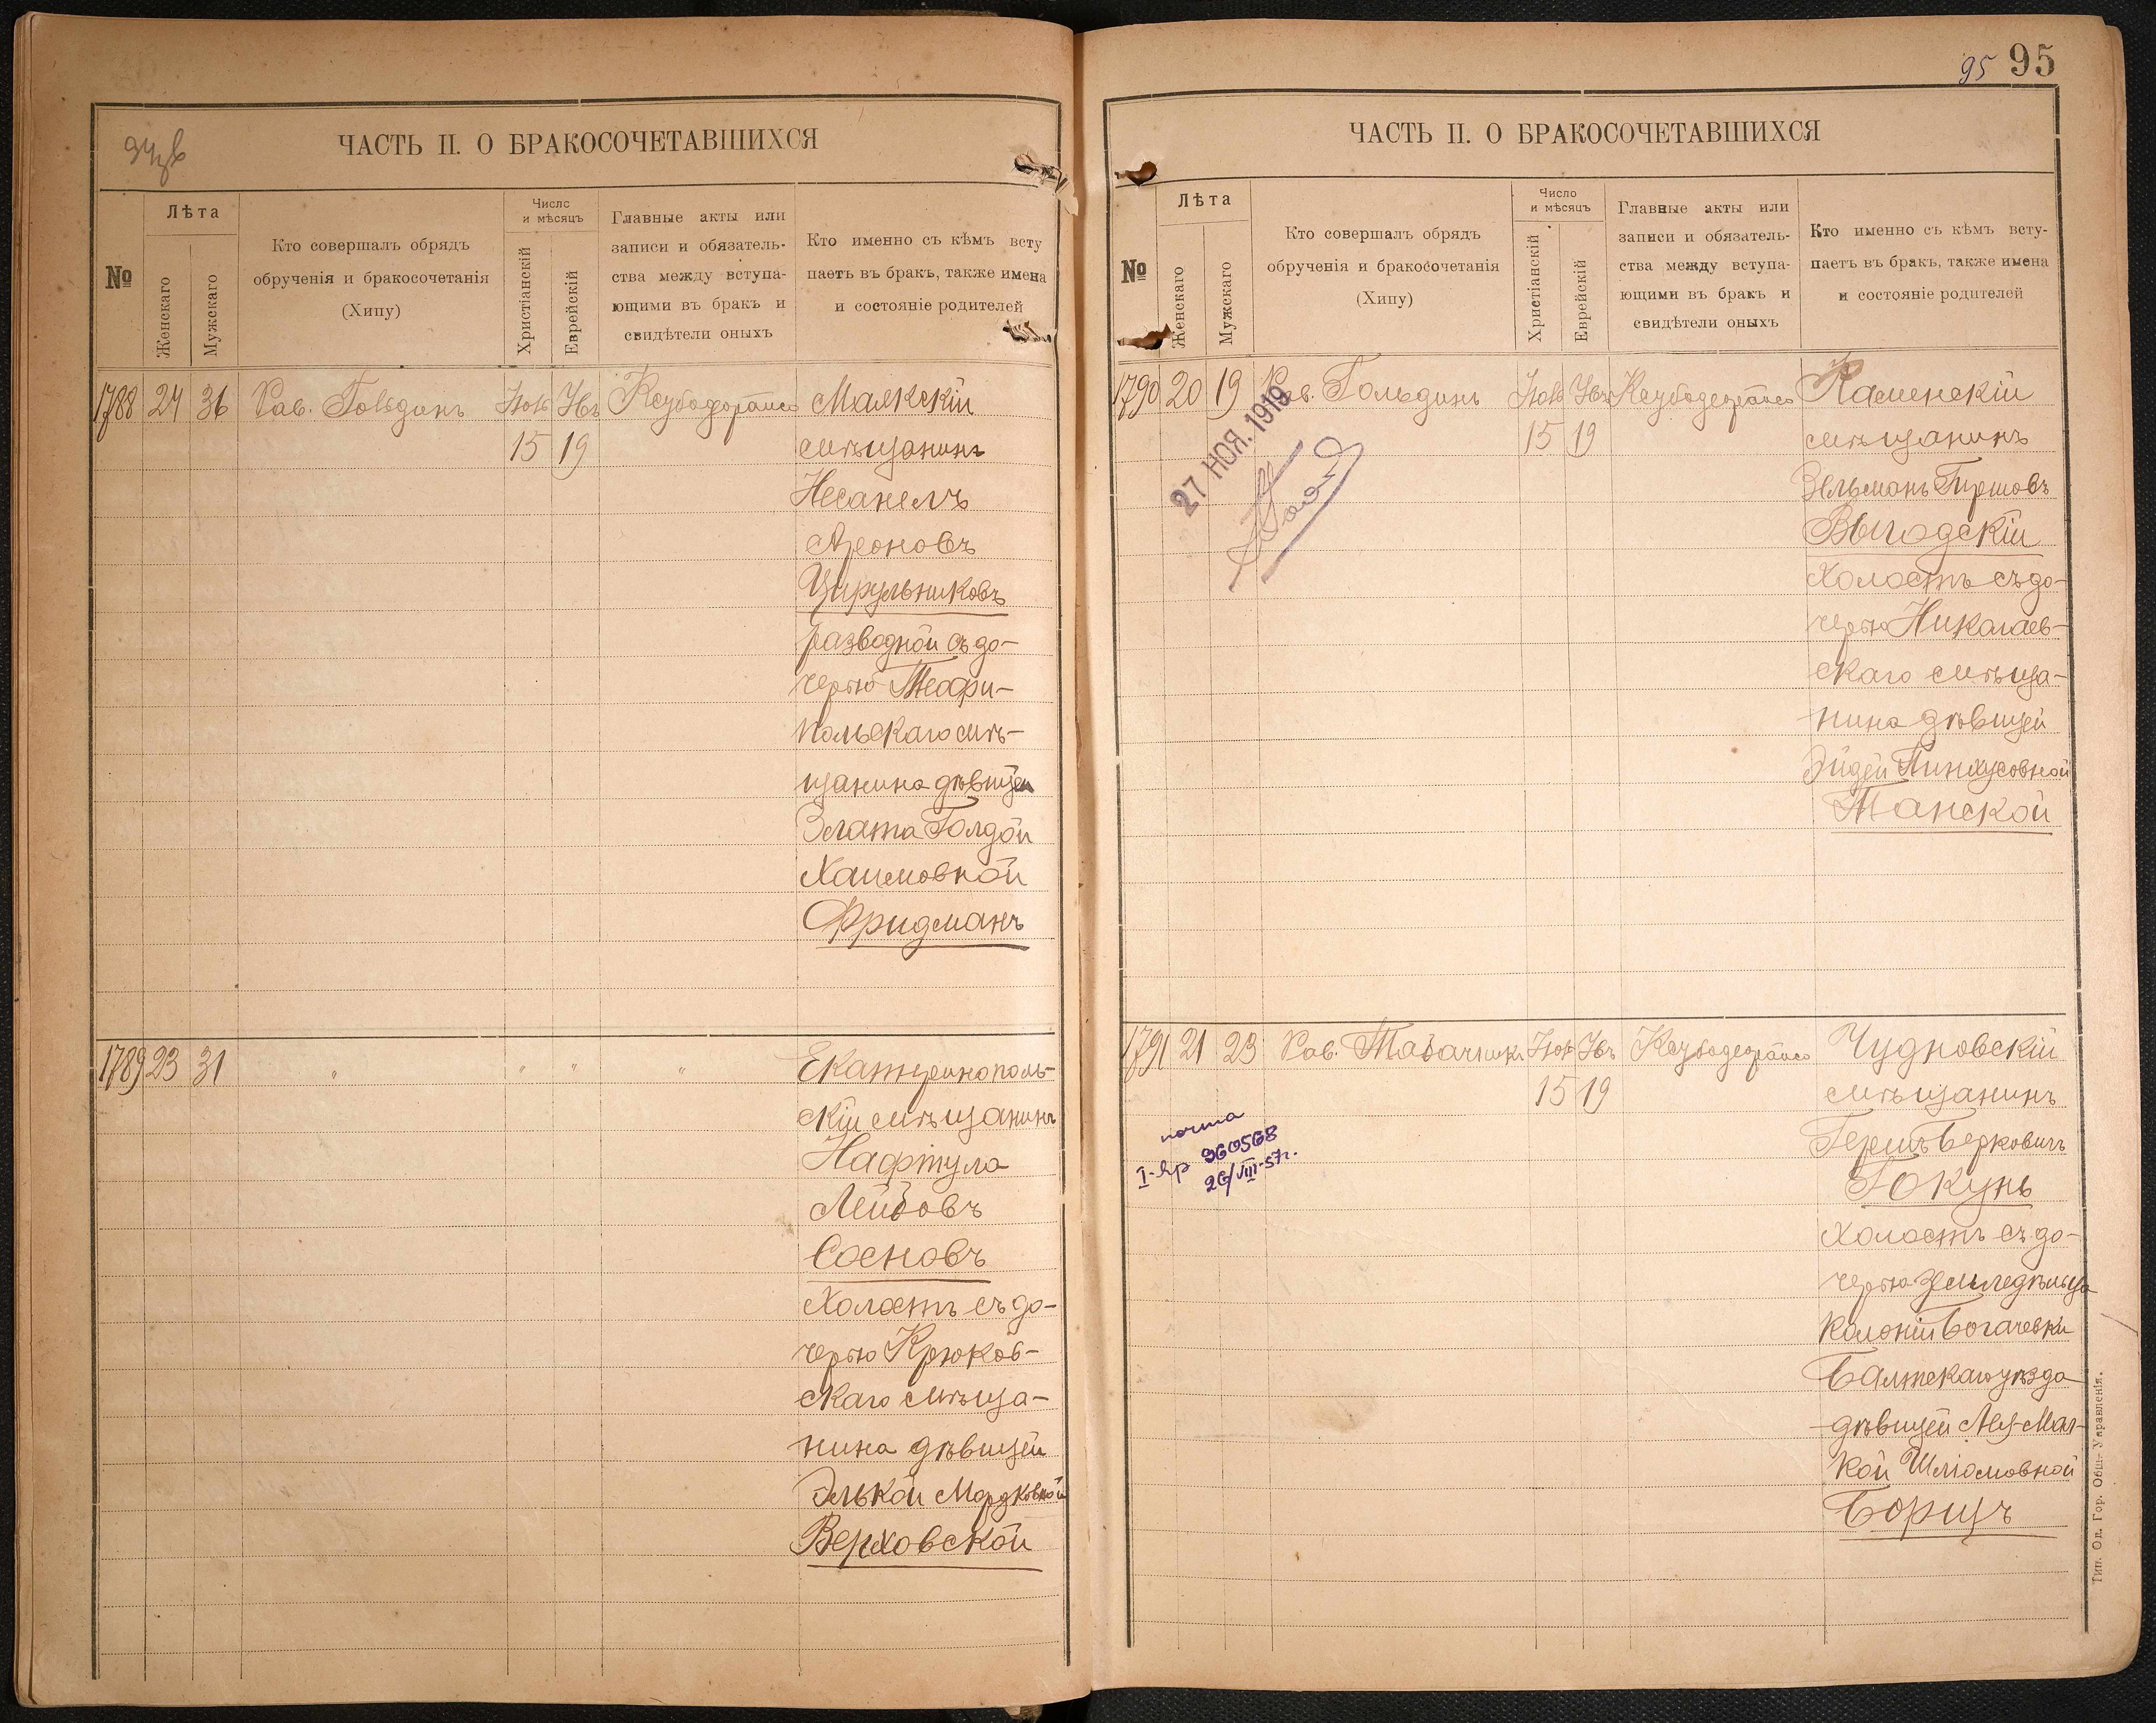 94 об
ЧАСТЬ II. О БРАКОСОЧЕТАВШИХСЯ
№
Лѣта
Женскаго
Мужскаго
Кто совершалъ обрядъ
обрученія и бракосочетанія
(Хипу)
Число
и мѣсяцъ
Христіанскій
Еврейскій
Главные акты или
записи и обязатель-
ства между вступа-
ющими въ бракъ и
свидѣтели оныхъ
Кто именно съ кѣмъ всту
паетъ въ бракъ, также имена
и состояніе родителей
1788 24 36 Рав. Гольдинъ
15 19
Малкскій
мѣщанинъ
Несанелъ
Ароновъ
Цирульниковъ
разводной съ до-
черью Теофи-
польскаго мѣ-
щанина дѣвицей
Злата Голдой
Хаимовной
Фридманъ
1789 23 31 " " " "
Екатеринополь-
скій мѣщанинъ
Нафтула
Лейбовъ
Сосновъ
холостъ съ до-
черью Крюков-
скаго мѣща-
нина дѣвицей
Элькой Мордковной
Верховской
95 95
ЧАСТЬ II. О БРАКОСОЧЕТАВШИХСЯ
№
Лѣта
Женскаго
Мужскаго
Кто совершалъ обрядъ
обрученія и бракосочетанія
(Хипу)
Число
и мѣсяцъ
Христіанскій
Еврейскій
Главные акты или
записи и обязатель-
ства между вступа-
ющими въ бракъ и
свидѣтели оныхъ
Кто именно съ кѣмъ всту-
паетъ въ бракъ, также имена
и состояніе родителей
1790 20 19 Рав. Гольдинъ
15 19
27 НОЯ. 1919
Каменскій
мѣщанинъ
Зельманъ Гиршовъ
Выгодскій
холостъ съ до-
черью Николаев-
скаго мѣща-
нина дѣвицей
Эйдей Пинхусовной
Танской
1791 21 23 Рав. Табачникъ
15 19
почта
960568
26/VIII-57г.
Чудновскій
мѣщанинъ
Гершъ Берковичъ
Гокунь
холостъ съ до-
черью земледѣльца
колоніи Богачевки
Балтскаго уѣзда
дѣвицей
Шліомовной
Борщъ
Тип. Од. Гор. Общ. Управленія.